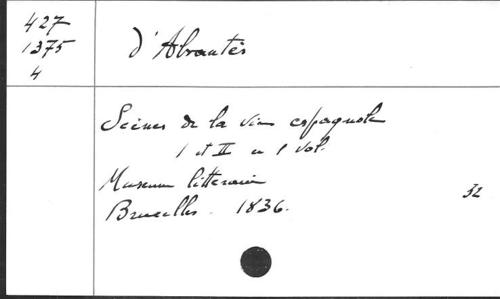 427
1375
4
d'Abrantès
Scènes de la vie espagnole
I et II en 1 vol.
Museum litteraire
Bruxelles. 1836.
32